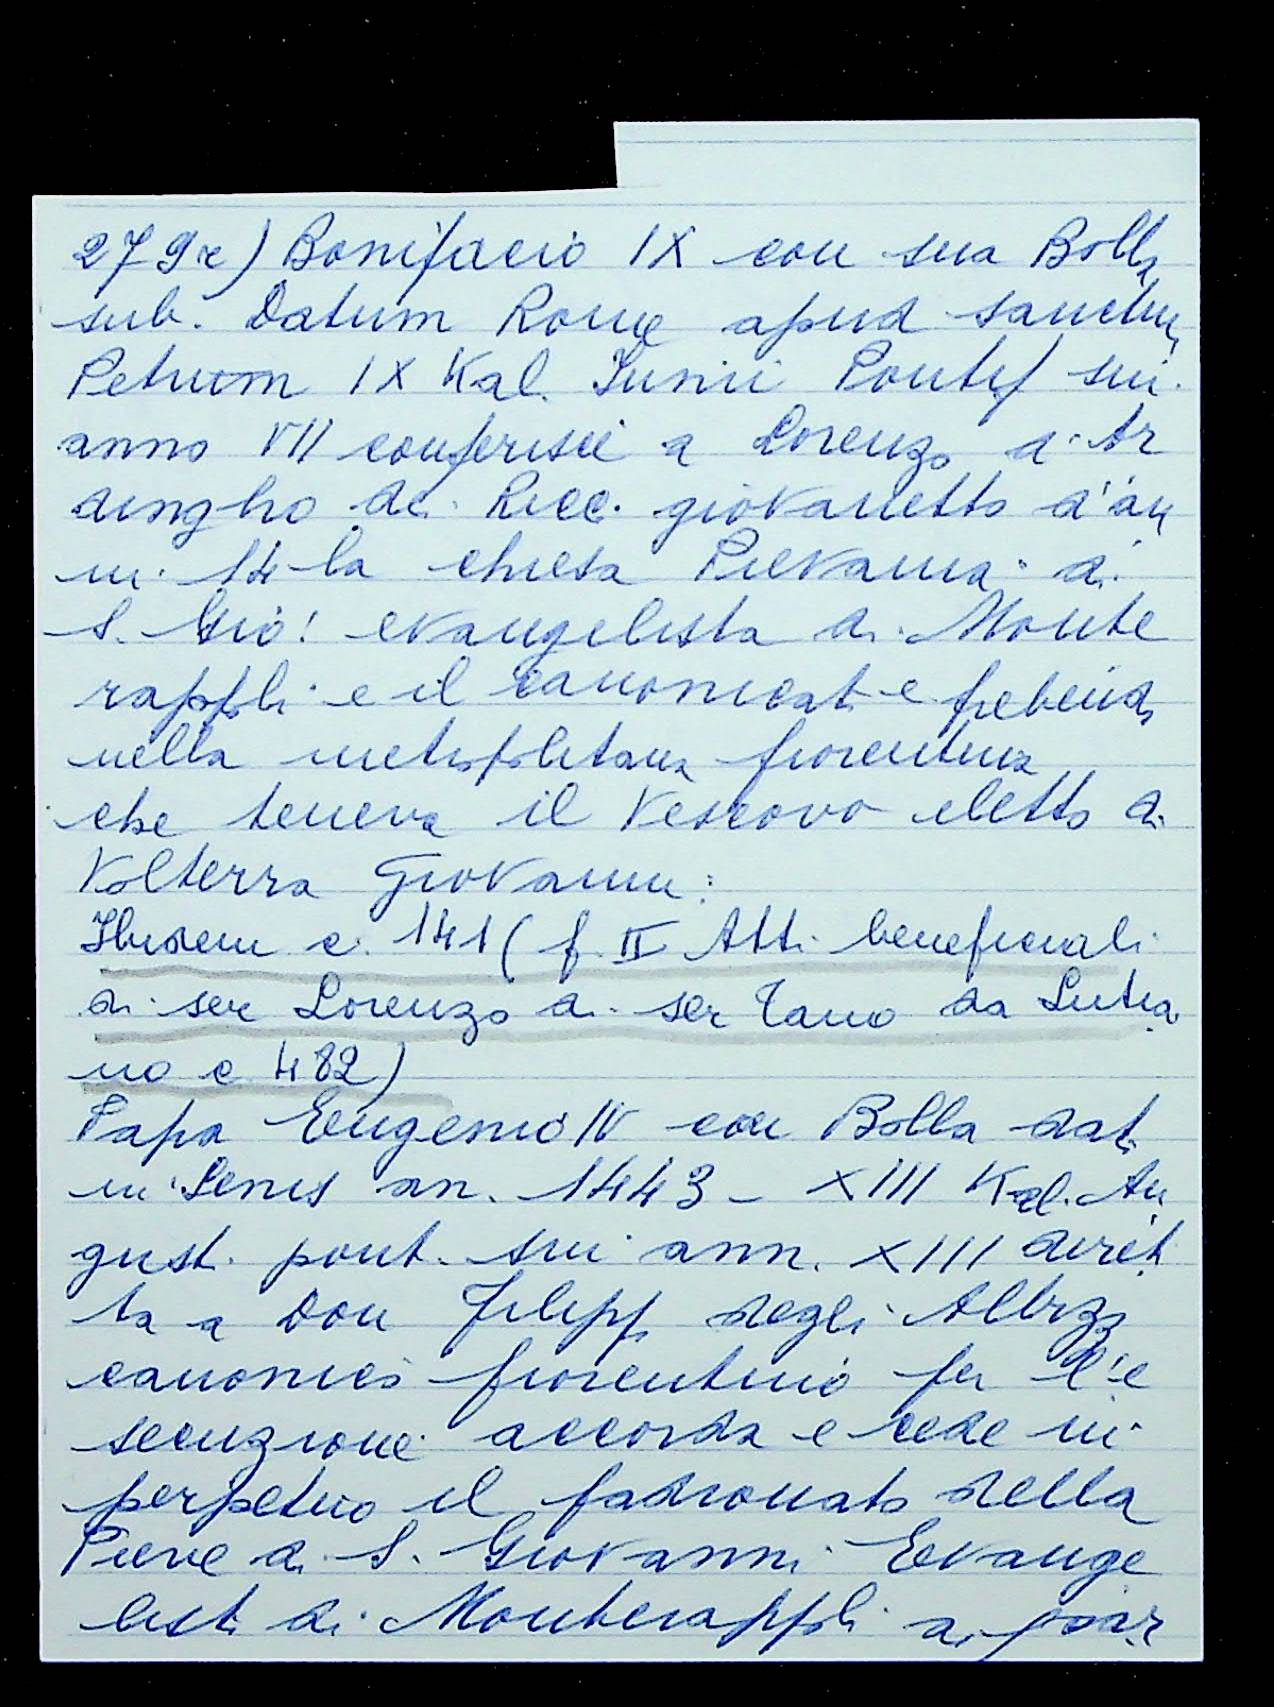 279r) Bonifacio IX con sua Bolla
sub. Datum Rome apud sanctum
Petrum IX Kal. Junii Pontif sui
anno VII conferisce a Lorenzo di Ar
dingho de. Ricc. giovanetto d'an
ni 14 la chiesa Pievania di
S. Gio: evangelista di Monte
rappoli e il canonicato e prebenda
nella metropolitana fiorentina
che teneva il Vescovo eletto di
Volterra Giovanni:
Ibidem c. 141 (f. II Atti beneficiali
di ser Lorenzo di ser Tano da Lutia
no c 482)
Papa Eugenio IV con Bolla dat.
in Senis an. 1443 - XIII Kal. Au
gust. pont. sui ann. XIII diret
ta a Don Filippo degli Albizzi
canonico fiorentino per l'e
secuzione accorda e cede in
perpetuo il padronato della
Pieve di S. Giovanni Evange
lista di Monterappoli a